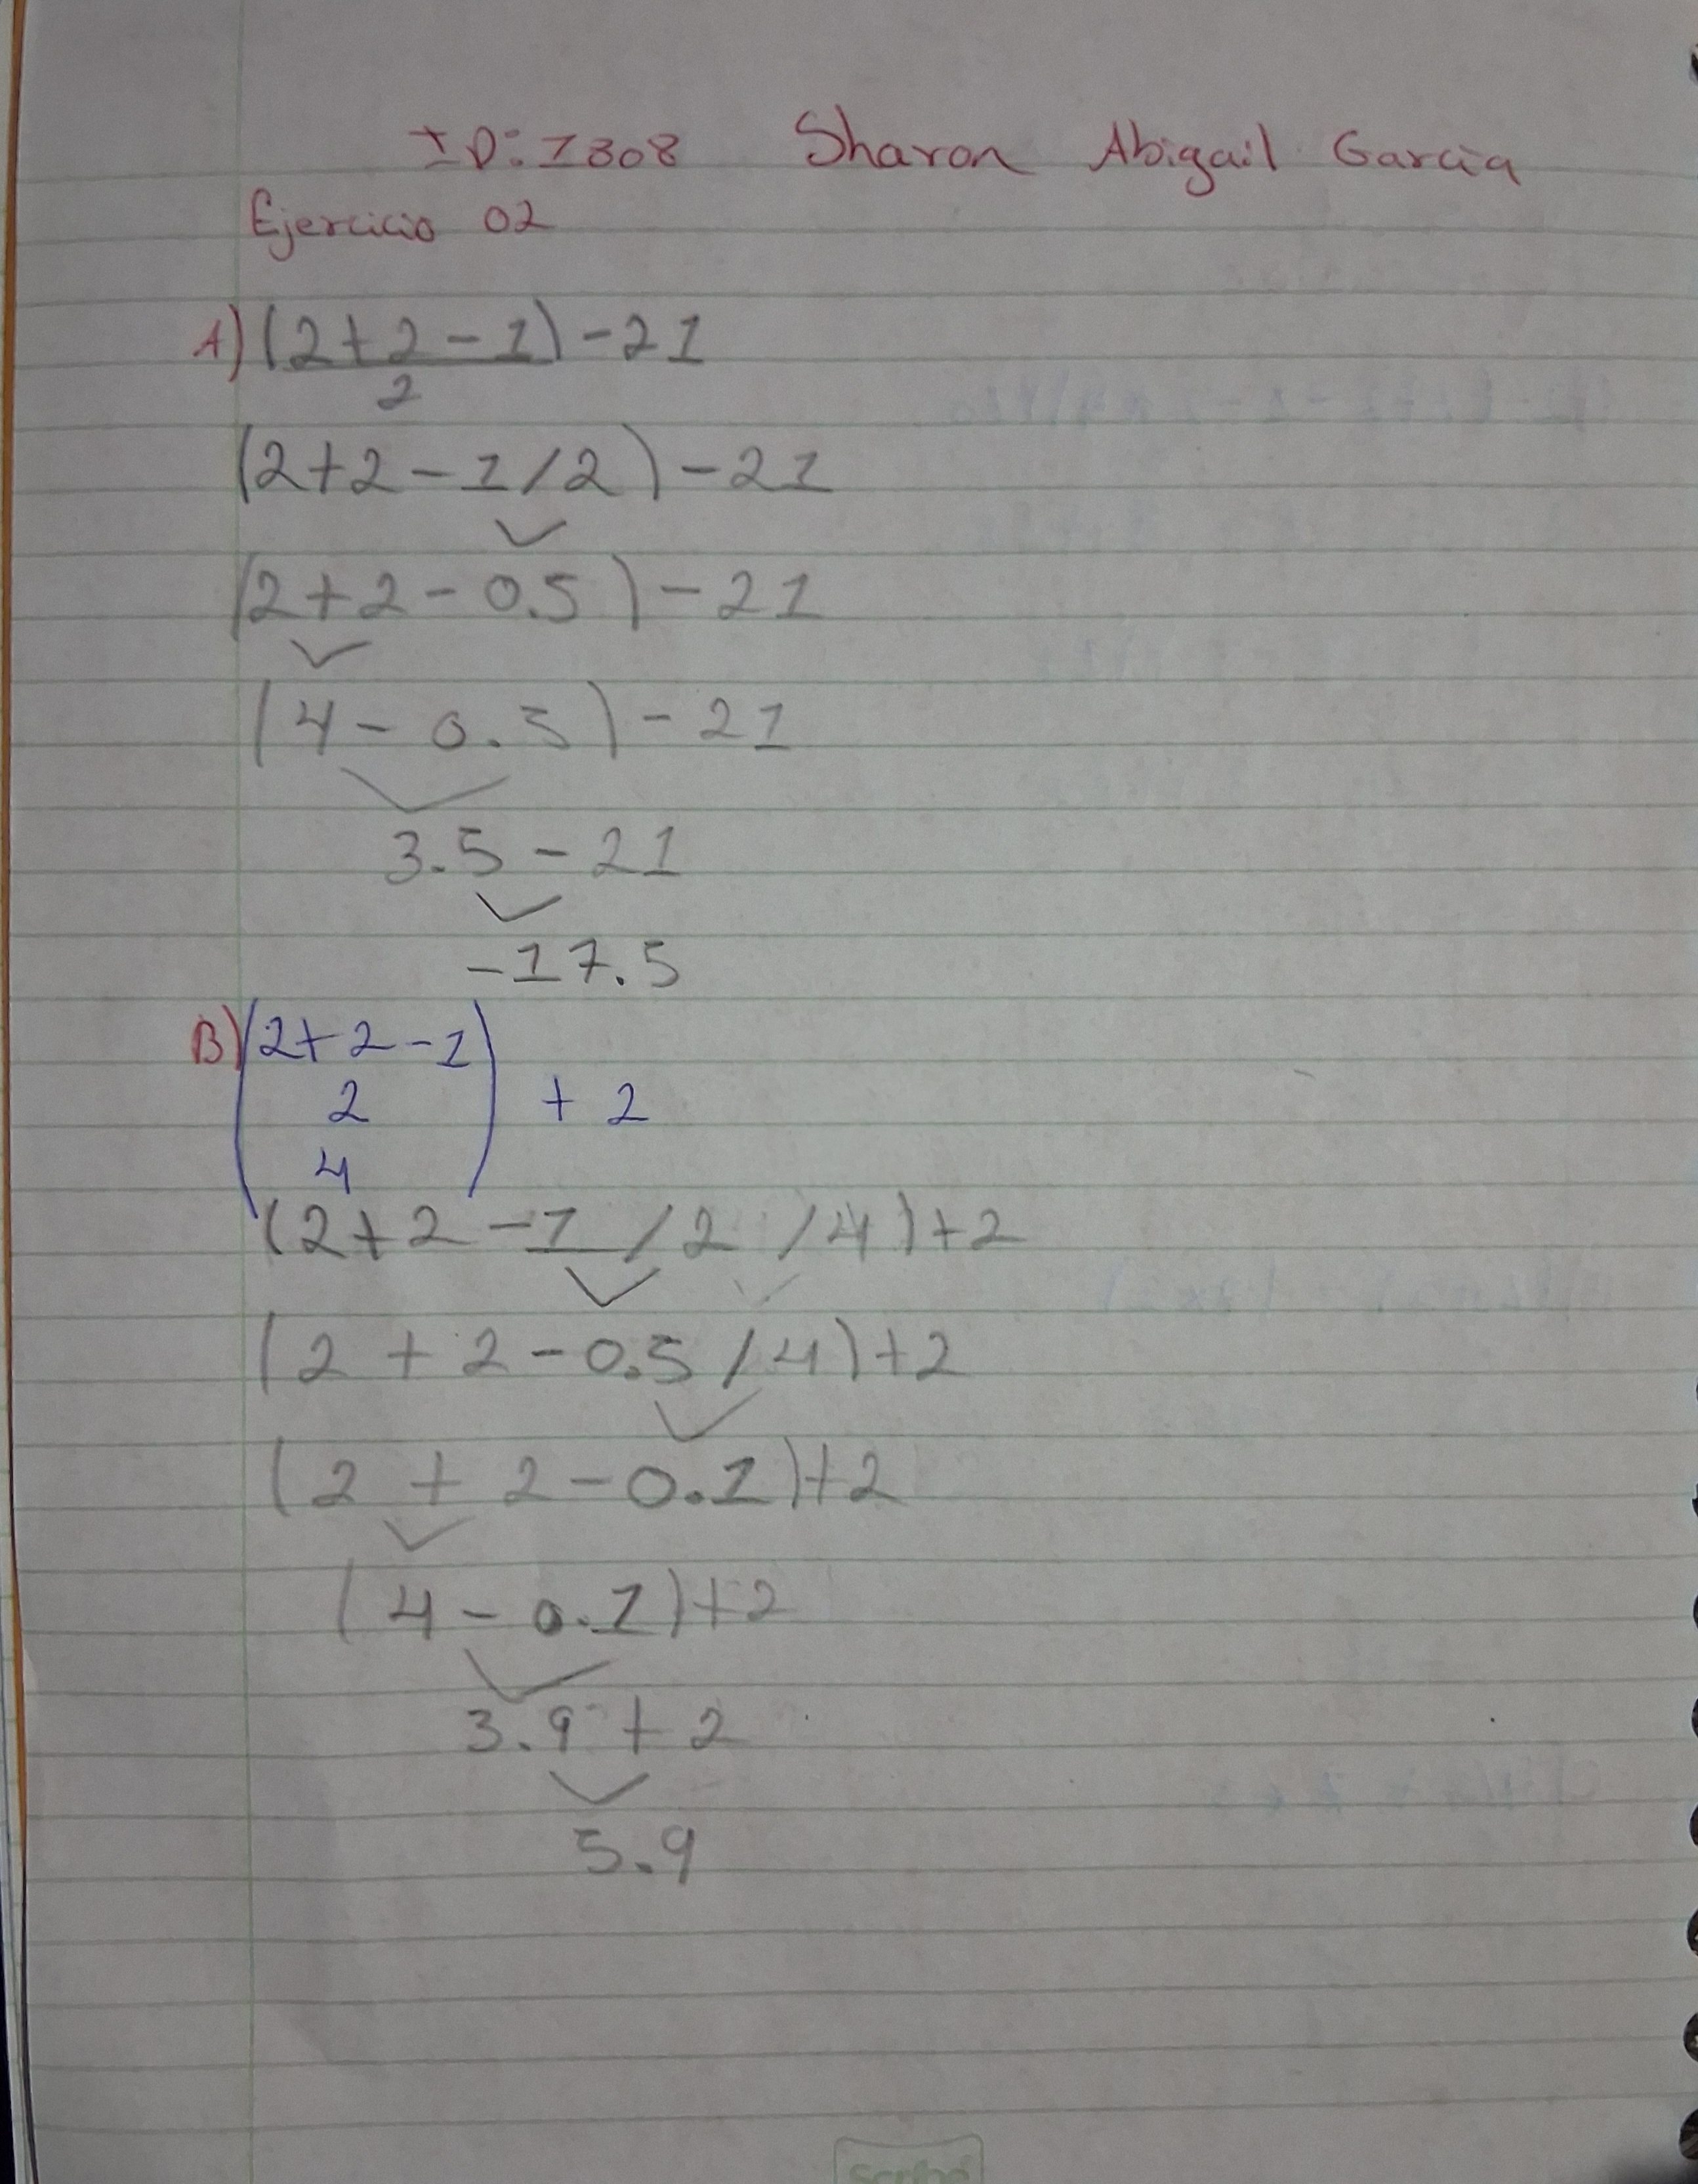 ID: 1308 Sharon Abigail Garcia
Ejercicio 02
A) (2+2-1) -21
2
(2+2-1/2) -21
(2+2-0.5) -21
(4-0.5) -21
3.5-21
-17.5
B) (2+2-1
2
4) + 2
(2+2-1/2/4)+2
(2+2-0.5/4)+2
(2+2-0.1)+2
(4-0.1)+2
3.9+2
5.9
Scribe